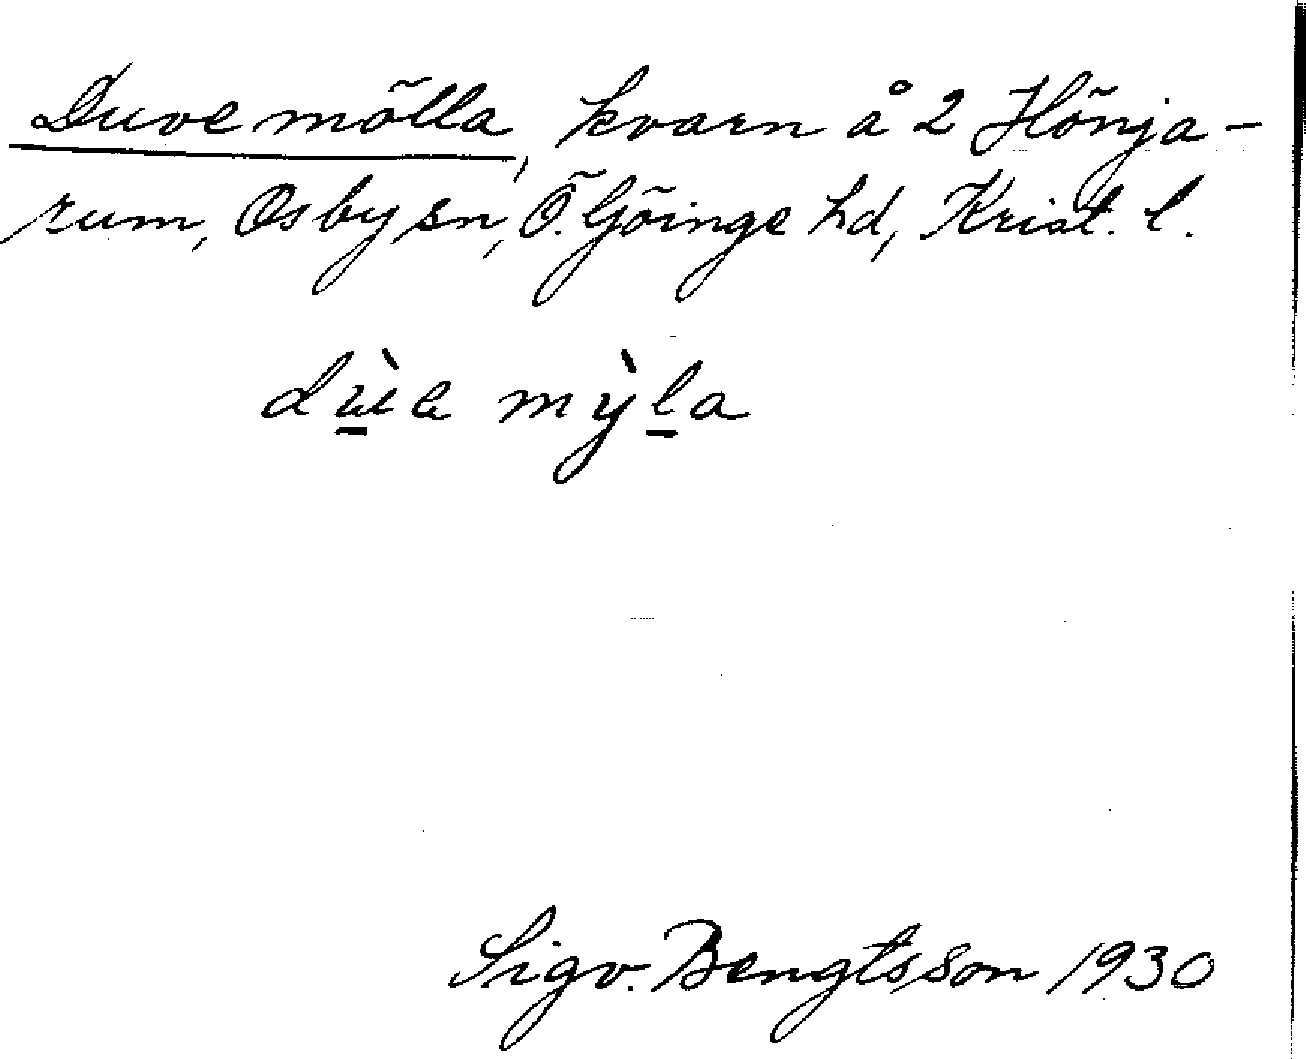 Duvemölla, kvarn å 2 Hönja-
rum, Osby sn, Ö. Göinge hd, Krist. l.
dùa mỳla
Sigv. Bengtsson 1930